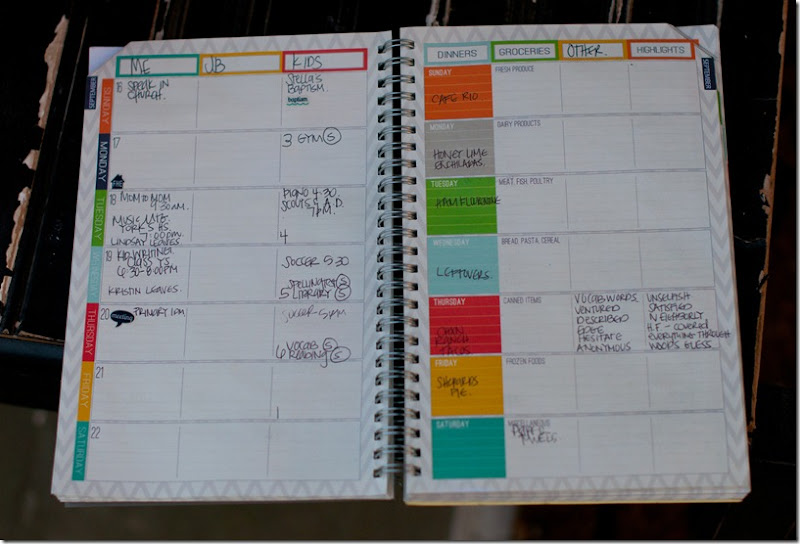 ME JB KIDS
SEPTEMBER
SUNDAY
16 SPEAK IN
CHURCH.
STELLA'S
BAPTISM.
baptism
MONDAY
17
3 GYM S
TUESDAY
18 MOM TO MOM
MUSIC MTG.
YORK'S HS.
7:00pm.
LINDSAY LEAVES
PIANO 4:30
SCOUTS
7PM.
4
WEDNESDAY
19
CLASS
6:30-8:00PM
KRISTIN LEAVES.
SOCCER 5:30
SPELLING S
5 LIBRARY S
THURSDAY
20 meeting PRIMARY 1pm
VOCAB S
6 READING S
FRIDAY
21
SATURDAY
22
DINNERS GROCERIES OTHER. HIGHLIGHTS
SEPTEMBER
SUNDAY
CAFE RIO
FRESH PRODUCE
MONDAY
HONEY LIME
ENCHILADAS.
DAIRY PRODUCTS
TUESDAY
MEAT, FISH, POULTRY
WEDNESDAY
LEFTOVERS
BREAD, PASTA, CEREAL
THURSDAY
RANCH
TACOS
CANNED ITEMS
VOCAB WORDS
VENTURED
DESCRIBED
EDGE
HESITATE
ANONYMOUS
UNSELFISH
SATISFIED
NEIGHBORLY
H.F - COVERED
EVERYTHING THROUGH
FRIDAY
SHEPARDS
PIE.
FROZEN FOODS
SATURDAY
MISCELLANEOUS